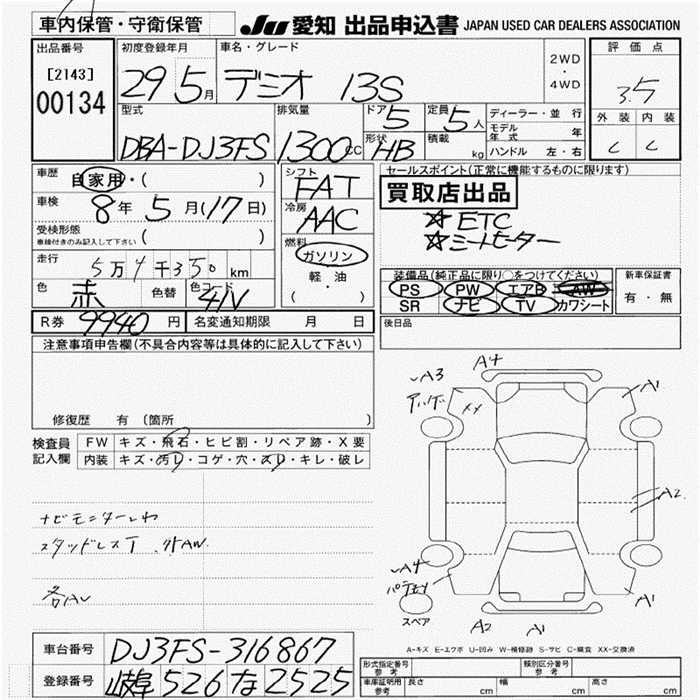 車内保管・守衛保管
JU 愛知 出品申込書 JAPAN USED CAR DEALERS ASSOCIATION
出品番号
[2143]
00134
初度登録年月
29 5月
車名・グレード
デミオ 13S
2WD
・
4WD
評価点
3.5
外装 内装
C C
型式
DBA-DJ3FS
排気量
1300cc
ドア 5
形状 HB
定員 5人
積載 kg
ディーラー・並行
モデル年式 年
ハンドル 左・右
車歴
自家用・( )
車検
8年5月(17日)
受検形態
車検付きのみ記入して下さい ( )
走行
5万4千350km
色 赤 色替 色コード 41V
シフト
FAT
冷房
AAC
燃料
ガソリン
軽・油
( )
セールスポイント(正常に機能するものに限ります)
買取店出品
☆ETC
☆シートヒーター
装備品(純正品に限り○をつけてください)
PS PW エアB AW
SR ナビ TV カワシート
新車保証書
有・無
R券 9940円 名変通知期限 月 日
後日品
注意事項申告欄(不具合内容等は具体的に記入して下さい)
修復歴 有(箇所 )
検査員記入欄
FW キズ・飛石・ヒビ割・リペア跡・X要
内装 キズ・汚レ・コゲ・穴・スレ・キレ・破レ
ナビモニターレわ
スタッドレスT .外AW.
各AU
A4
A3
アンダー
XX
A1
A2
A4
A1
スペア
A2
A1
A-キズ E-エクボ U-凹み W-補修跡 S-サビ C-腐食 XX-交換済
車台番号 DJ3FS-316867
登録番号 岐阜 526 な 2525
形式指定番号 参考
類別区分番号 参考
車庫証明用 参考 長さ cm 幅 cm 高さ cm